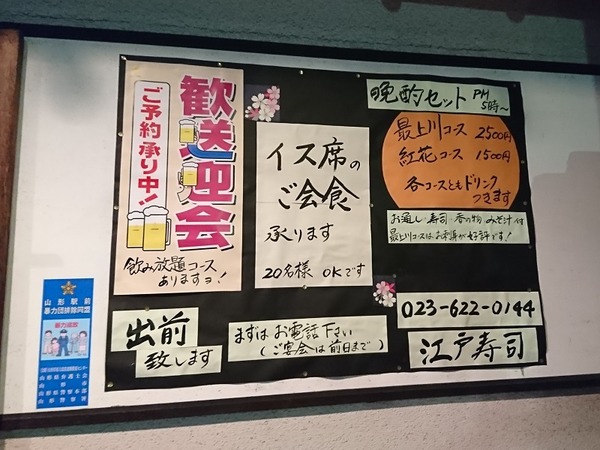 歓送迎会
ご予約承り中!!
飲み放題コース
ありますョ!
イス席の
ご会食
承ります
20名様 OKです
晩酌セット PM
5時〜
最上川コース 2500円
紅花コース 1500円
各コースともドリンク
つきます
お通し・寿司・香の物 みそ汁付
最上川コースはお刺身が好評です!
023-622-0144
江戸寿司
出前
致します
まずはお電話下さい
(ご宴会は前日まで)
山形駅前
暴力団排除同盟
暴力追放
山形県弁護士会
山形市
山形県警察本部
山形警察署